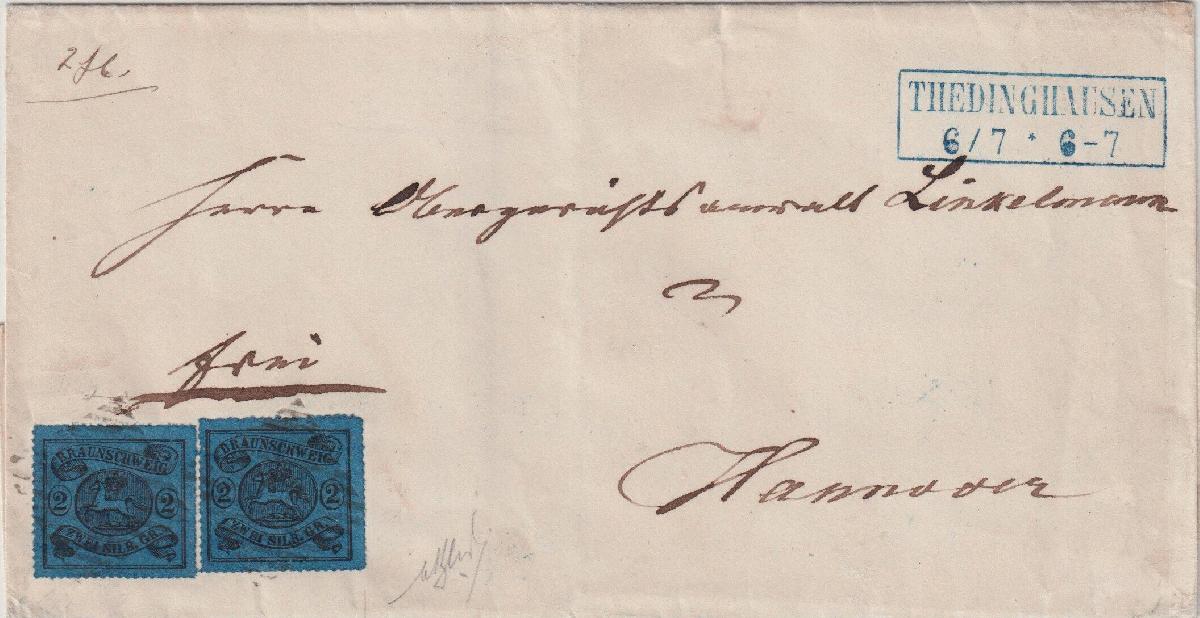 THEDINGHAUSEN
6/7 * 6-7
Herrn Obergerichtsanwalt Linkelmann
frei
Hannover
BRAUNSCHWEIG
2 2
ZWEI SILB. GR.
BRAUNSCHWEIG
2 2
ZWEI SILB. GR.